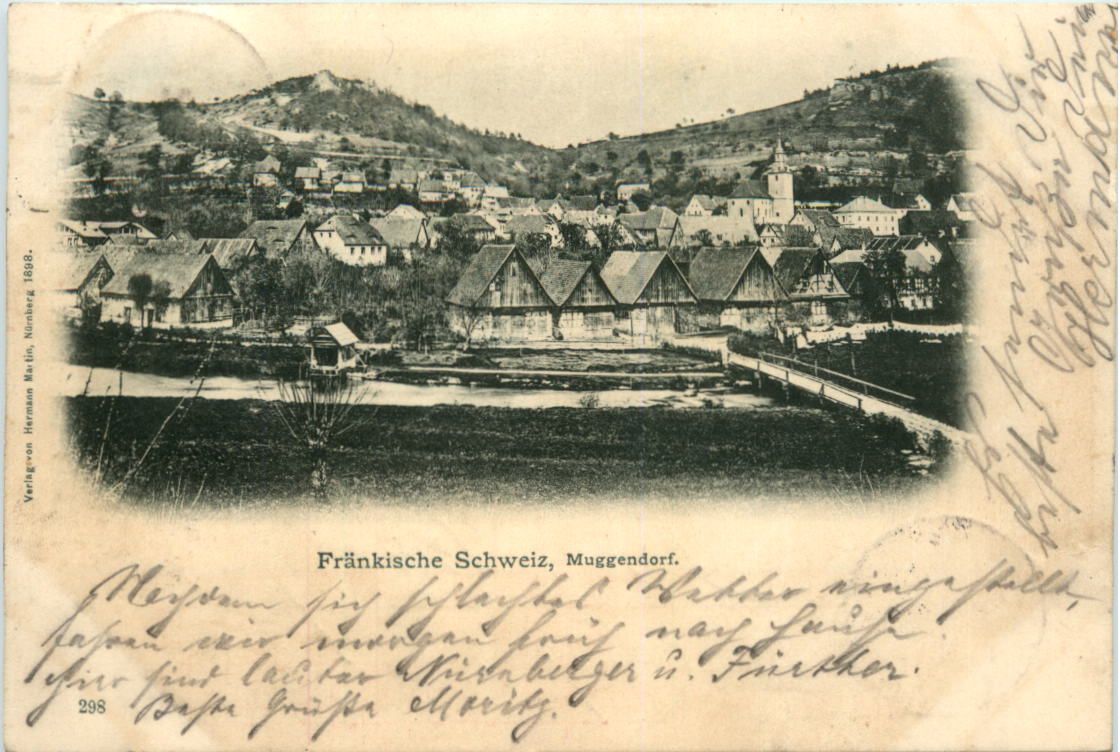 Verlag von Hermann Martin, Nürnberg 1898.
Fränkische Schweiz, Muggendorf.
Nachdem sich schlechtes Wetter eingestellt,
fahren wir morgen früh nach Hause.
Hier sind lauter Nürnberger u. Fürther.
Beste Grüße Moritz.
298
beste